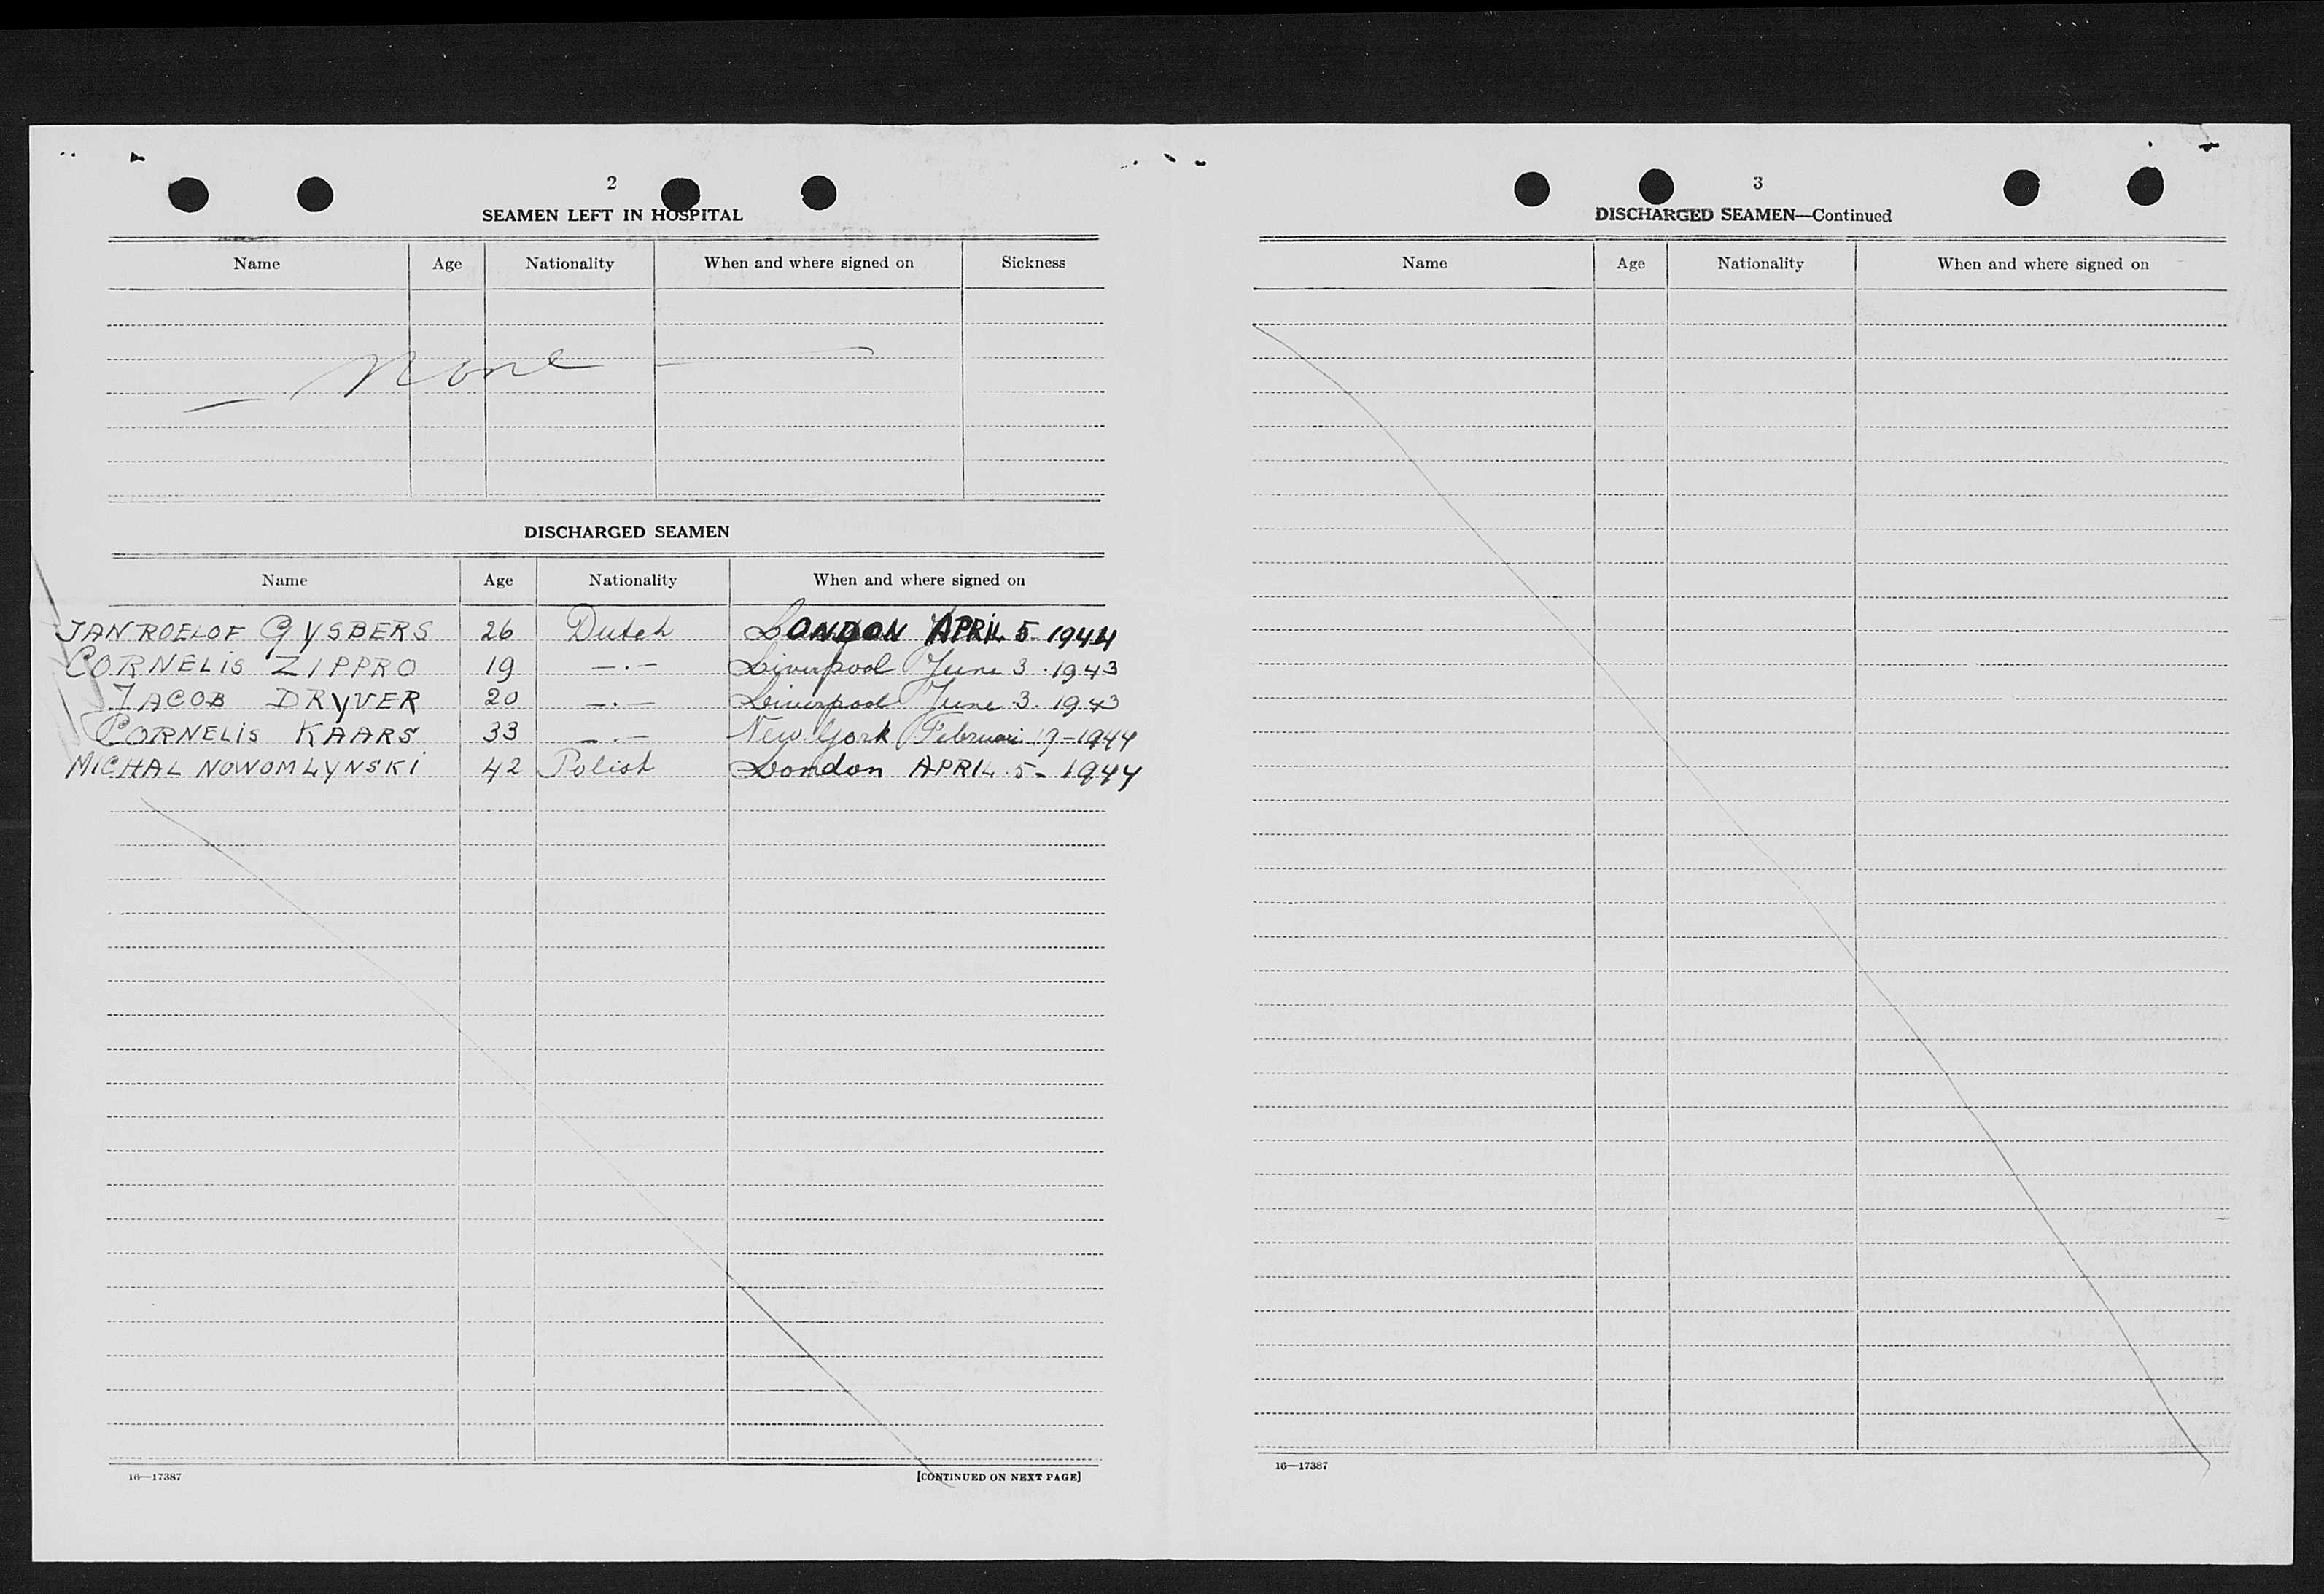 2
SEAMEN LEFT IN HOSPITAL
Name Age Nationality When and where signed on Sickness
— None —
DISCHARGED SEAMEN
Name Age Nationality When and where signed on
JAN ROELOF GYSBERS 26 Dutch LONDON APRIL 5 - 1944
CORNELIS ZIPPRO 19 —·— Liverpool June 3. 1943
JACOB DRYVER 20 —·— Liverpool June 3. 1943
CORNELIS KAARS 33 —·— New York Februari 19-1944
MICHAL NOWOMLYNSKI 42 Polish London APRIL 5 - 1944
16—17387 [CONTINUED ON NEXT PAGE]
3
DISCHARGED SEAMEN—Continued
Name Age Nationality When and where signed on
16—17387